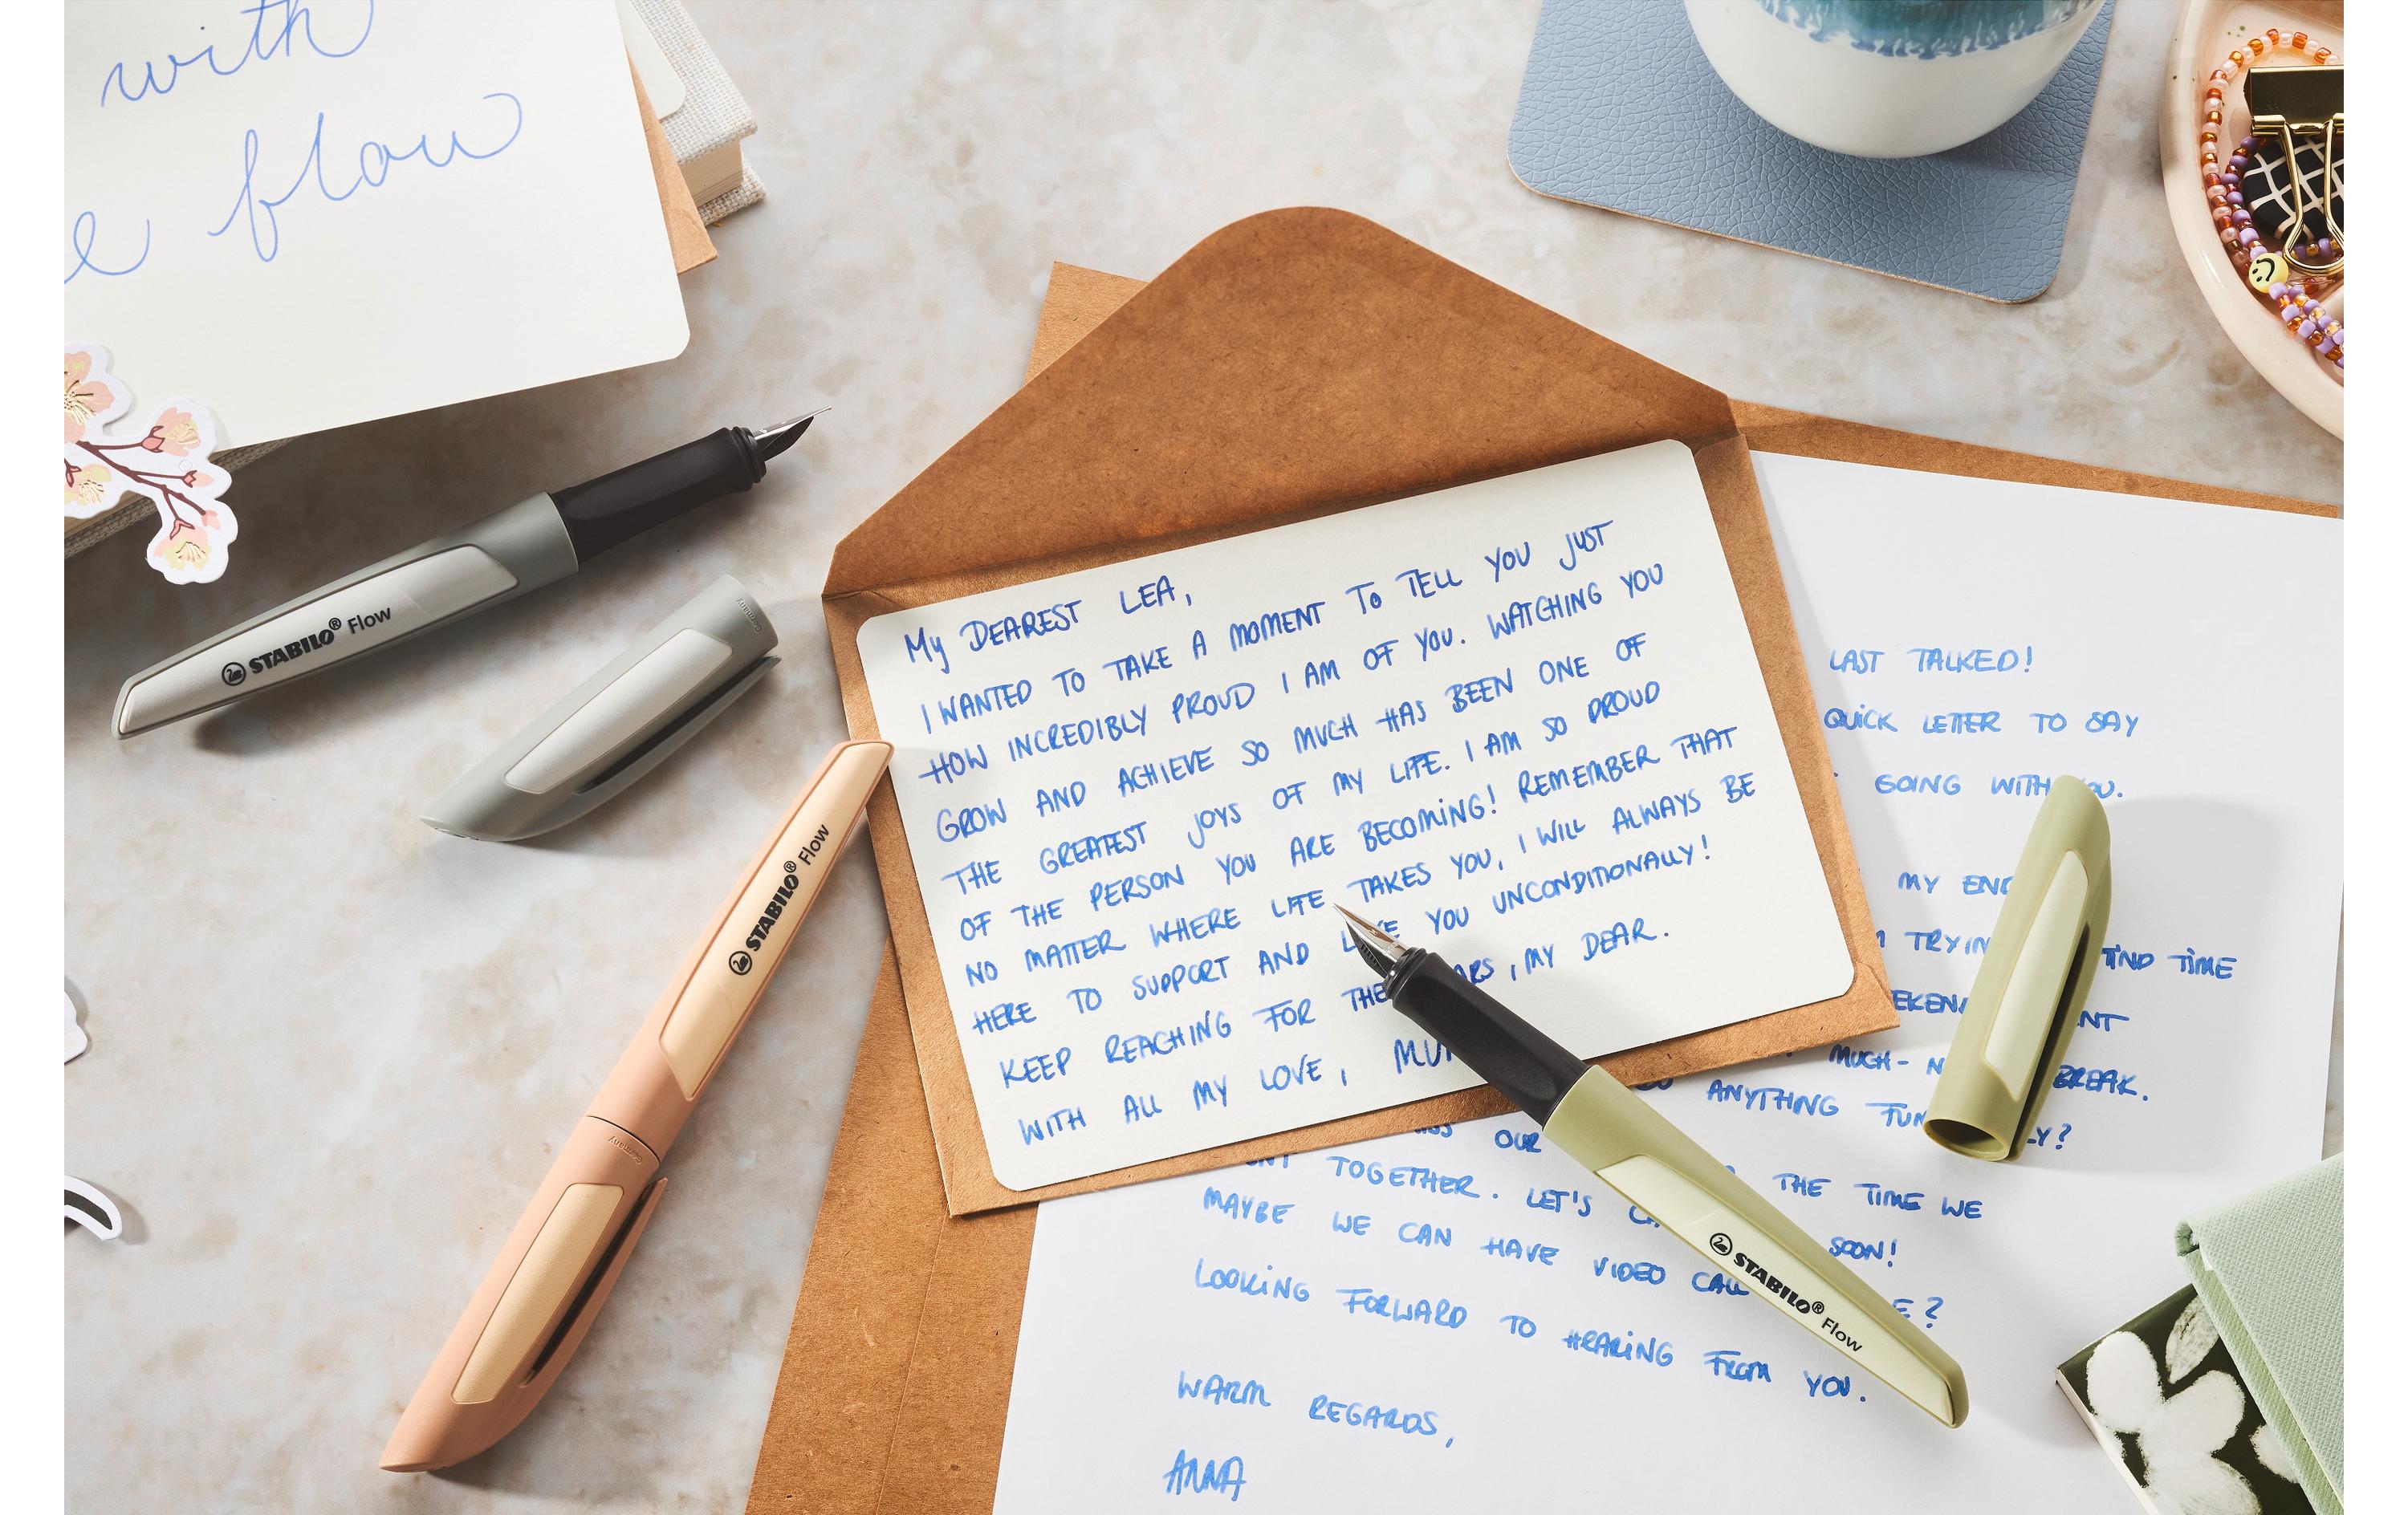 with
flow
STABILO® Flow
Germany
STABILO® Flow
Germany
My DEAREST LEA,
I WANTED TO TAKE A MOMENT TO TELL YOU JUST
HOW INCREDIBLY PROUD I AM OF YOU. WATCHING YOU
GROW AND ACHIEVE SO MUCH HAS BEEN ONE OF
THE GREATEST JOYS OF MY LIFE. I AM SO PROUD
OF THE PERSON YOU ARE BECOMING! REMEMBER THAT
NO MATTER WHERE LIFE TAKES YOU, I WILL ALWAYS BE
HERE TO SUPPORT AND YOU UNCONDITIONALLY!
KEEP REACHING FOR , MY DEAR.
WITH ALL MY LOVE,
LAST TALKED!
QUICK LETTER TO SAY
GOING WITH
MY
TIME
MUCH- BREAK.
ANYTHING
OUR
TOGETHER. LET'S THE TIME WE
MAYBE WE CAN HAVE VIDEO SOON!
LOOKING FORWARD TO HEARING FROM YOU.
WARM REGARDS,
ANNA
STABILO® Flow